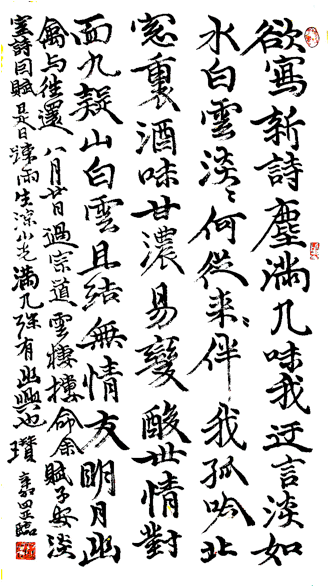 欲寫新詩塵滿几味我迂言淡如
水白雲淡〻何從来〻伴我孤吟北
窓裏酒味甘濃易變酸世情對
面九疑山白雲且結無情友明月幽
禽与往還 八月廿日過宗道雲棲樓命余賦子安淡
室詩因賦是日踈雨生涼小滿几殊有幽興也瓚 臨